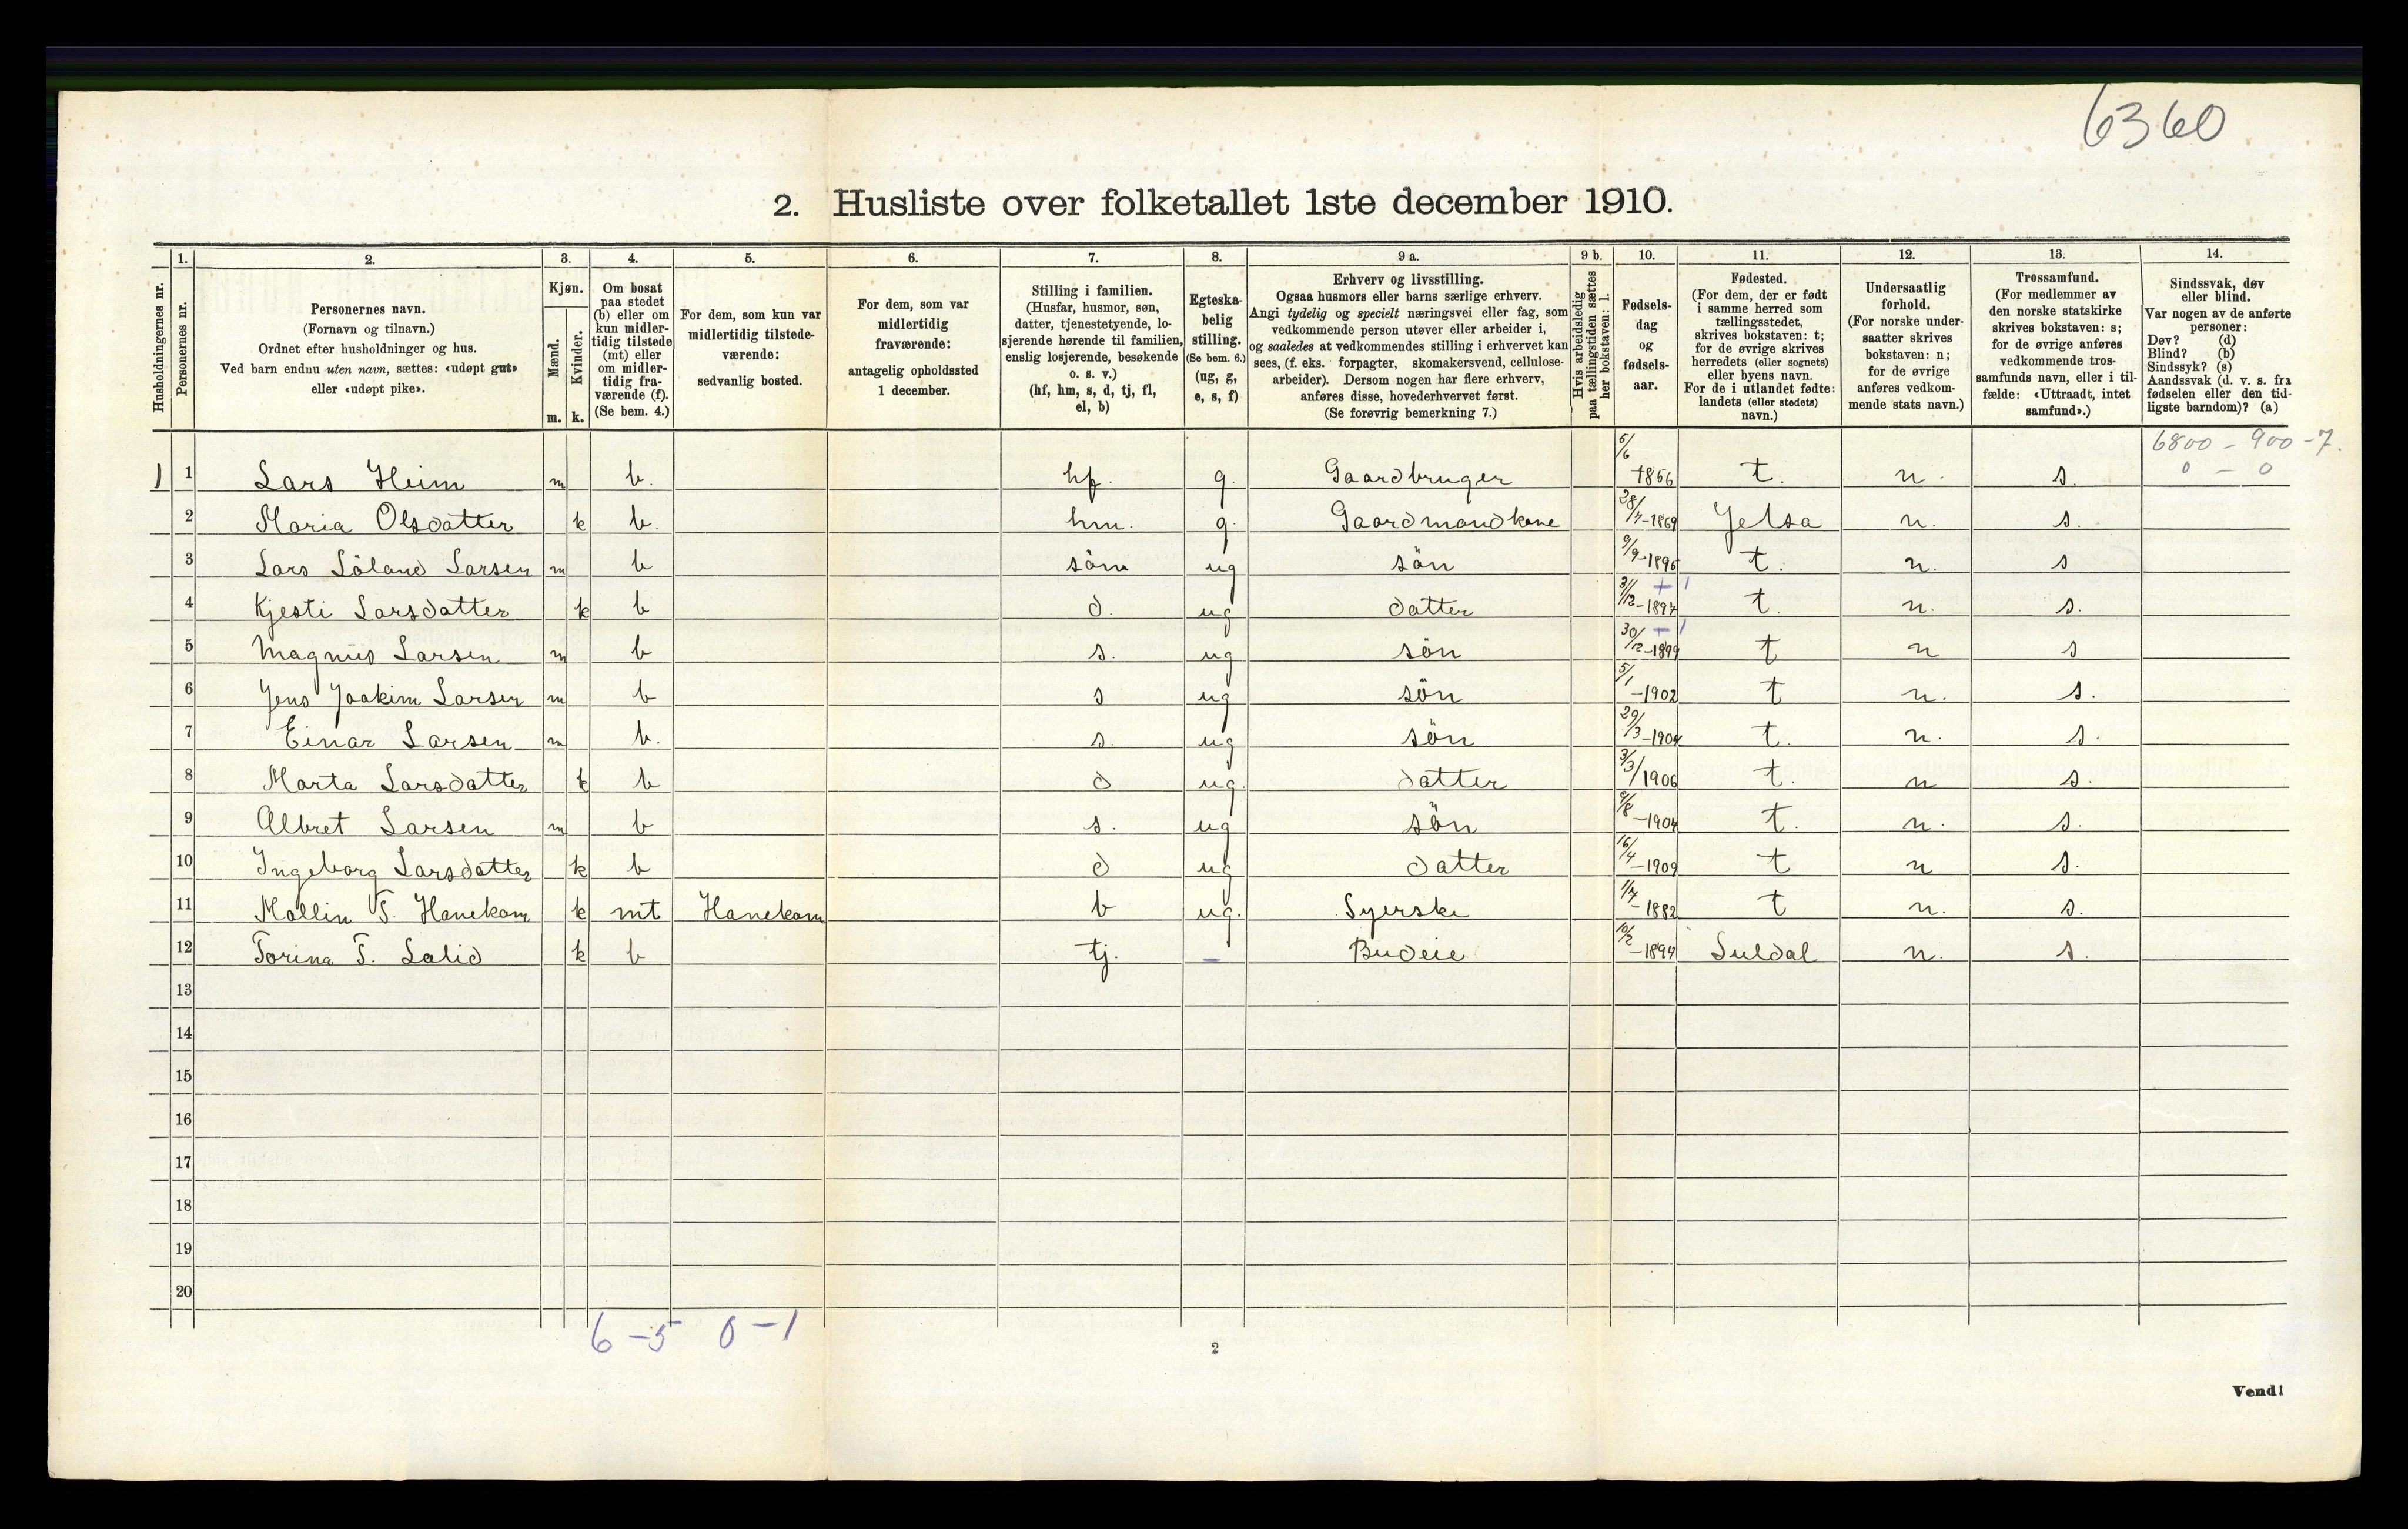 6360
2. Husliste over folketallet 1ste december 1910.
Husholdningernes nr.
1.
Personernes nr.
2.
Personernes navn.
(Fornavn og tilnavn.)
Ordnet efter husholdninger og hus.
Ved barn endnu uten navn, sættes: «udøpt gut»
eller «udøpt pike».
3.
Kjøn.
Mænd.
m.
Kvinder.
k.
4.
Om bosat
paa stedet
(b) eller om
kun midler-
tidig tilstede
(mt) eller
om midler-
tidig fra-
værende (f).
(Se bem. 4.)
5.
For dem, som kun var
midlertidig tilstede-
værende:
sedvanlig bosted.
6.
For dem, som var
midlertidig
fraværende:
antagelig opholdssted
1 december.
7.
Stilling i familien.
(Husfar, husmor, søn,
datter, tjenestetyende, lo-
sjerende hørende til familien,
enslig losjerende, besøkende
o. s. v.)
(hf, hm, s, d, tj, fl,
el, b)
8.
Egteska-
belig
stilling.
(Se bem. 6.)
(ug, g,
e, s, f)
9 a.
Erhverv og livsstilling.
Ogsaa husmors eller barns særlige erhverv.
Angi tydelig og specielt næringsvei eller fag, som
vedkommende person utøver eller arbeider i,
og saaledes at vedkommendes stilling i erhvervet kan
sees, (f. eks. forpagter, skomakersvend, cellulose-
arbeider). Dersom nogen har flere erhverv,
anføres disse, hovederhvervet først.
(Se forøvrig bemerkning 7.)
9 b.
Hvis arbeidsledig
paa tællingstiden sættes
her bokstaven: l.
10.
Fødsels-
dag
og
fødsels-
aar.
11.
Fødested.
(For dem, der er født
i samme herred som
tællingsstedet,
skrives bokstaven: t;
for de øvrige skrives
herredets (eller sognets)
eller byens navn.
For de i utlandet fødte:
landets (eller stedets)
navn.)
12.
Undersaatlig
forhold.
(For norske under-
saatter skrives
bokstaven: n;
for de øvrige
anføres vedkom-
mende stats navn.)
13.
Trossamfund.
(For medlemmer av
den norske statskirke
skrives bokstaven: s;
for de øvrige anføres
vedkommende tros-
samfunds navn, eller i til-
fælde: «Uttraadt, intet
samfund».)
14.
Sindssvak, døv
eller blind.
Var nogen av de anførte
personer:
Døv? (d)
Blind? (b)
Sindssyk? (s)
Aandssvak (d. v. s. fra
fødselen eller den tid-
ligste barndom)? (a)
6800 - 900 - 7.
0 - 0
1 1 Lars Heim m b. hf. g. Gaardbruger 5/6 1856 t. n. s.
2 Maria Olsdatter k b. hm. g. Gaardmandkone 28/7-1869 Jelsa n. s.
3 Lars Löland Larsen m b sön ug sön 9/9-1896 t. n. s
4 Kjesti Larsdatter k b d. ug datter 31/12-1897 t. n. s.
5 Magnus Larsen m b s. ug sön 30/12-1899 t n s
6 Jens Joakim Larsen m b s ug sön 5/1-1902 t n. s.
7 Einar Larsen m b. s. ug sön 29/3-1904 t. n. s.
8 Marta Larsdatter k b d ug. datter 3/3/1906 t. n s.
9 Albret Larsen m b s. ug sön t. n. s.
10 Ingeborg Larsdatter k b d ug datter 16/4-1909 t n s.
11 Mallin T. Hanekam k mt Hanekam b ug. Syerske 1/7-1882 t n. s.
12 Torina T. Lalid k b tj. - Budeie 10/2-1894 Suldal n. s.
13
14
15
16
17
18
19
20
6 - 5 0 - 1
2
Vend!